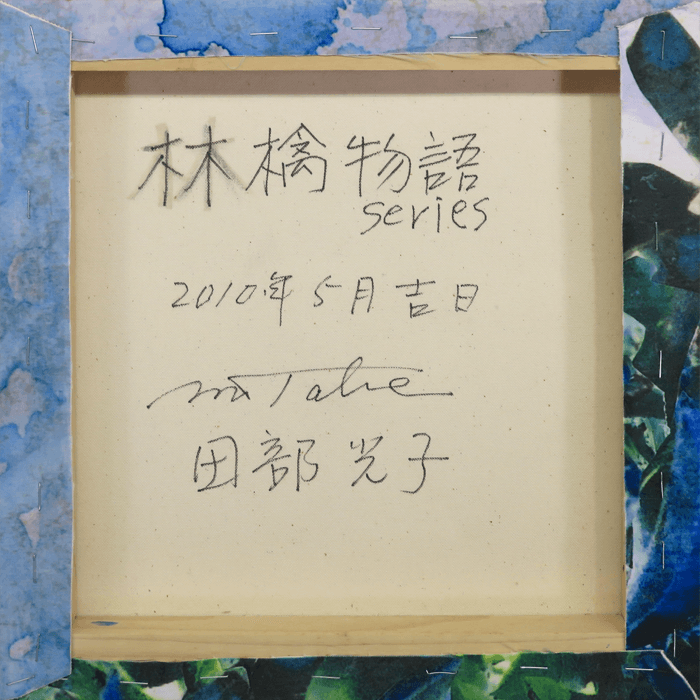 林檎物語
series
2010年5月吉日
m Tabe
田部光子